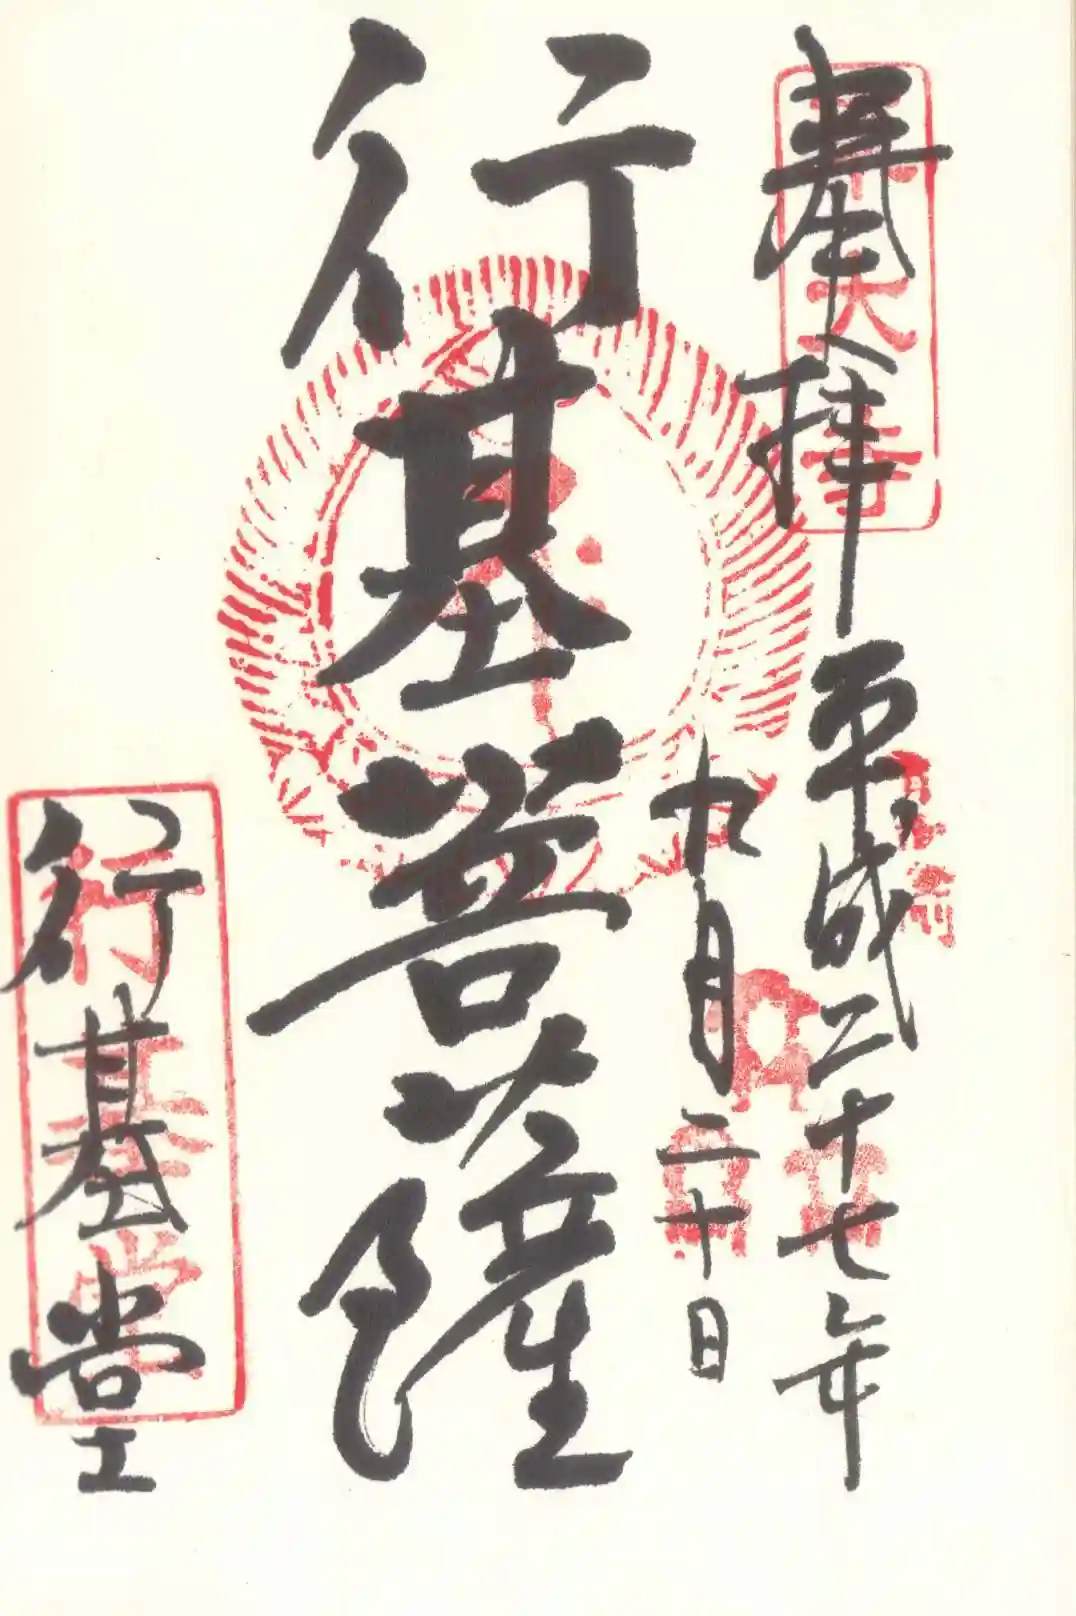 奉拝
平成二十七年
九月二十日
行基菩薩
行基堂
行基堂